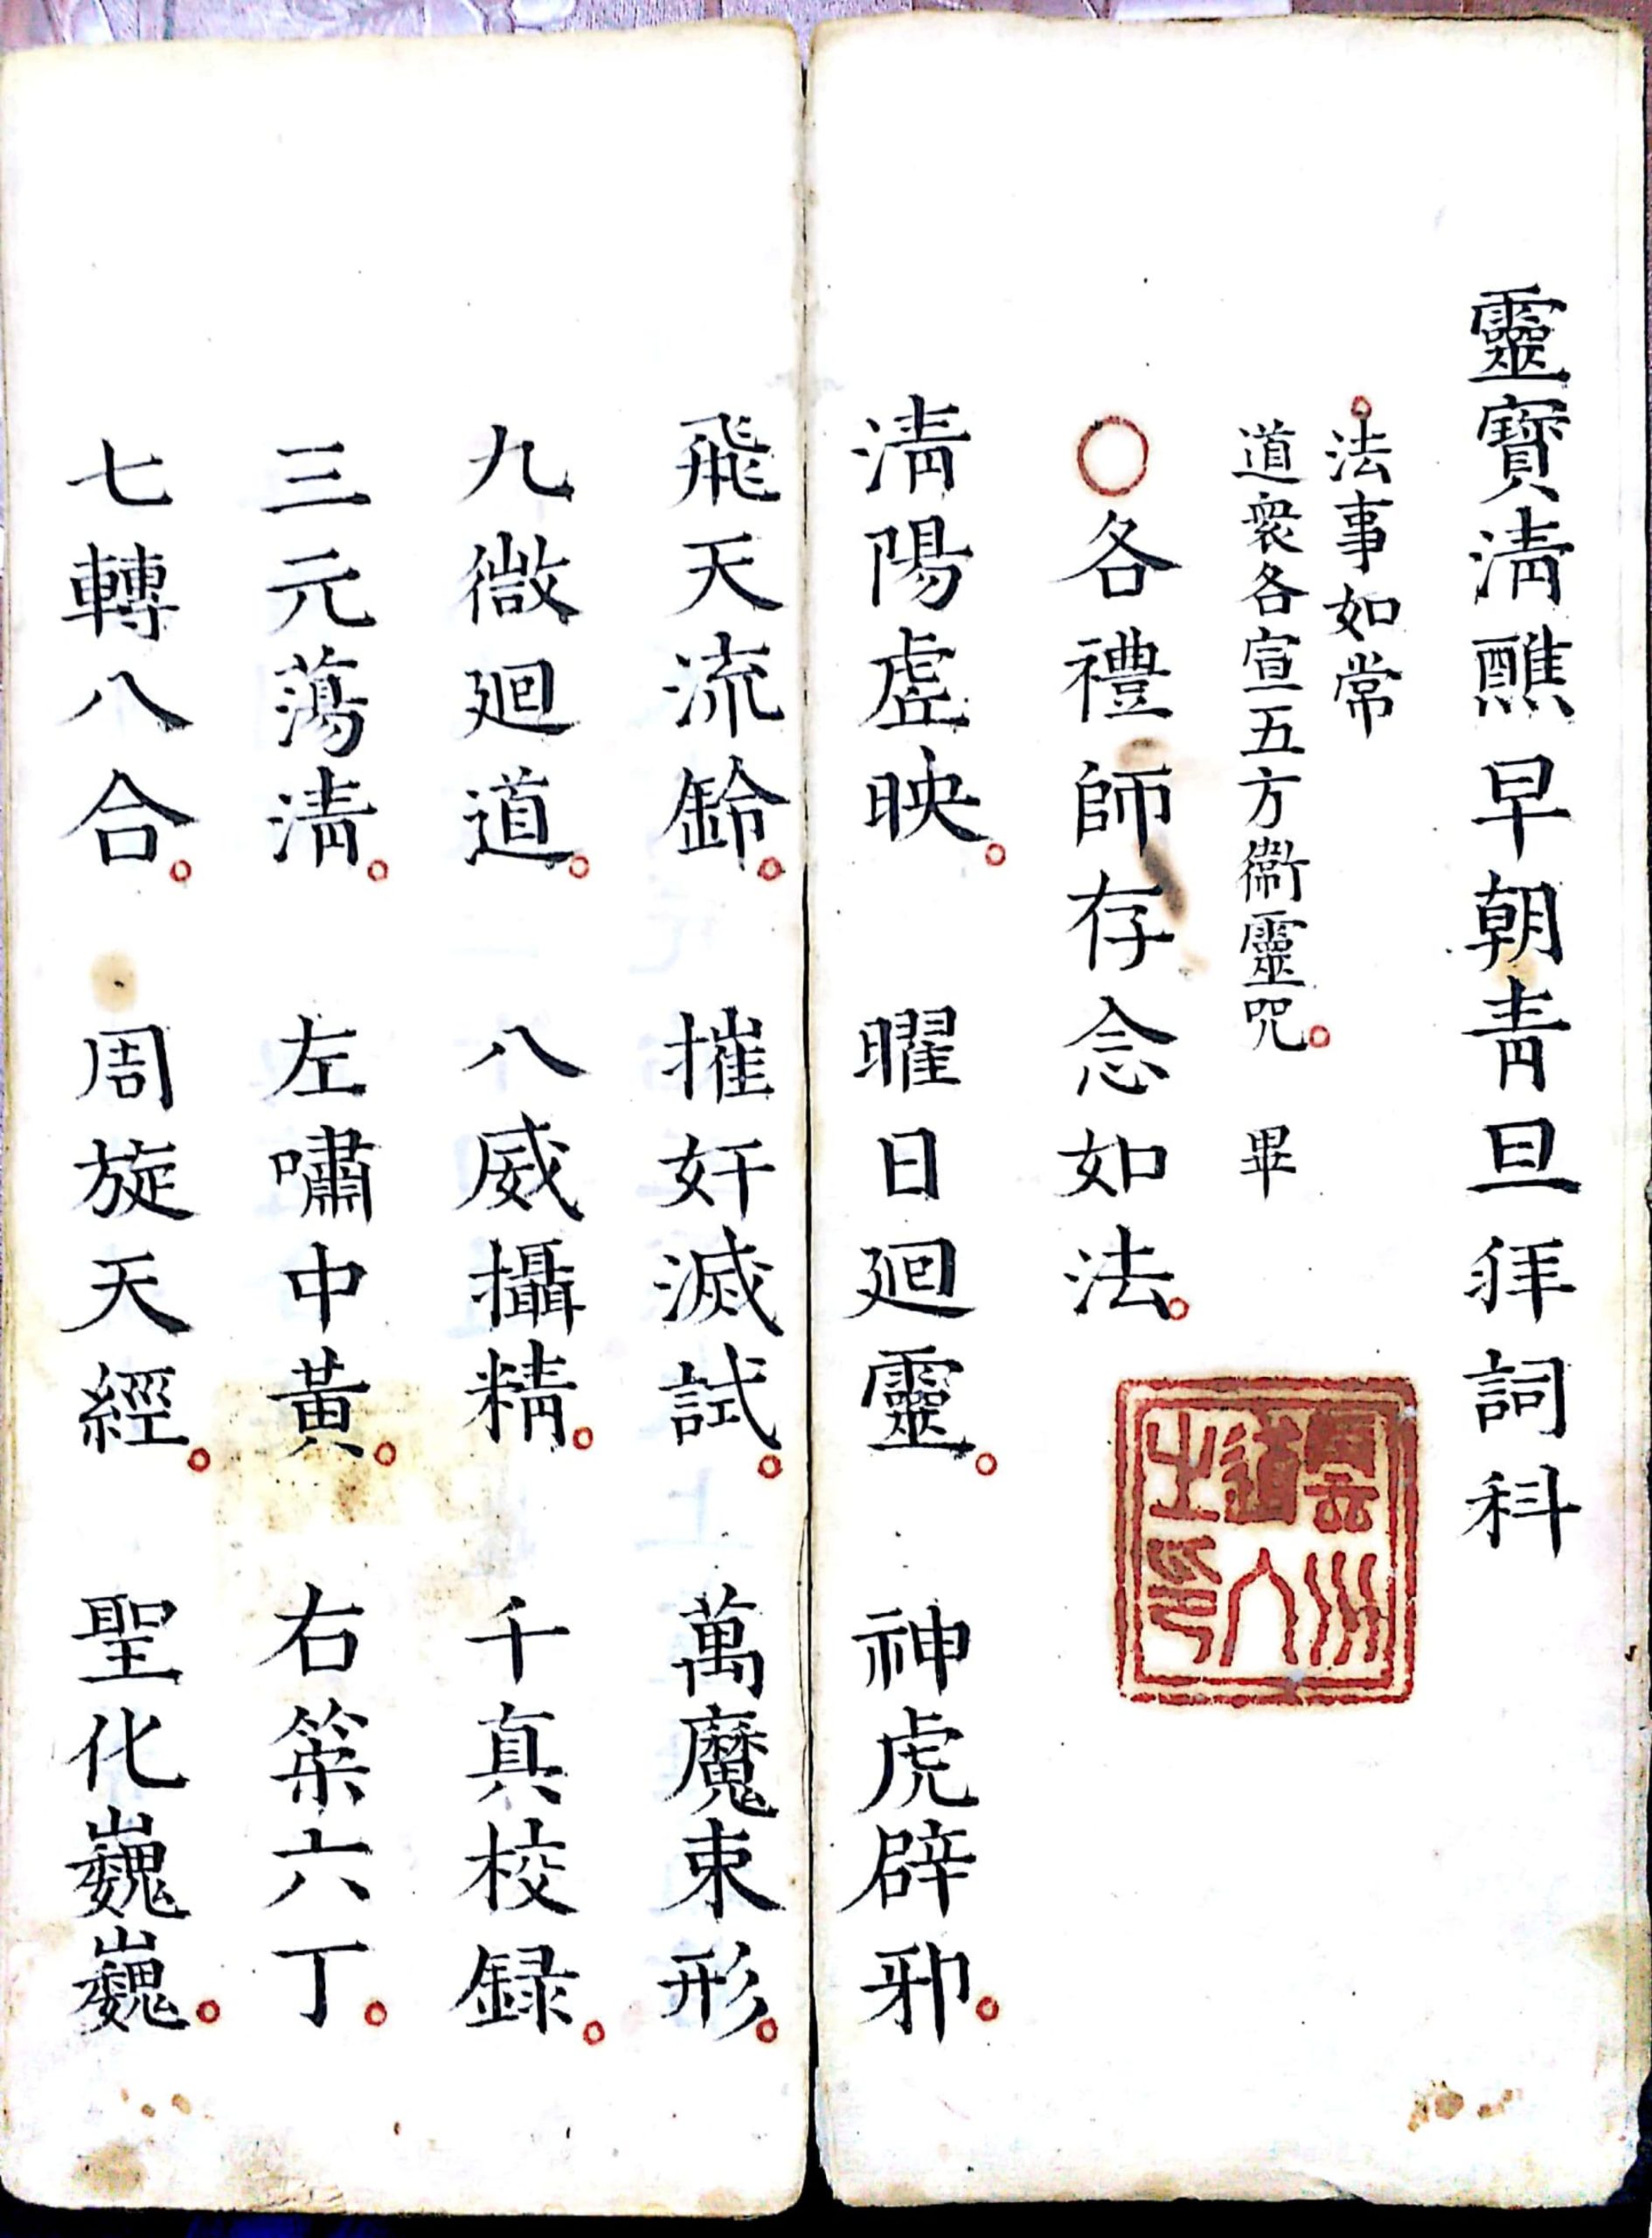 靈寶清醮早朝青旦拜詞科
法事如常
道衆各宣五方衞靈咒。 畢
○各禮師存念如法。
清陽虛映。 曜日廻靈。 神虎辟邪。
飛天流鈴。 摧奸滅試。 萬魔束形。
九微廻道。 八威攝精。 千真校録。
三元蕩清。 左嘯中黃。 右策六丁。
七轉八合。 周旋天經。 聖化巍巍。
雲水道人之印